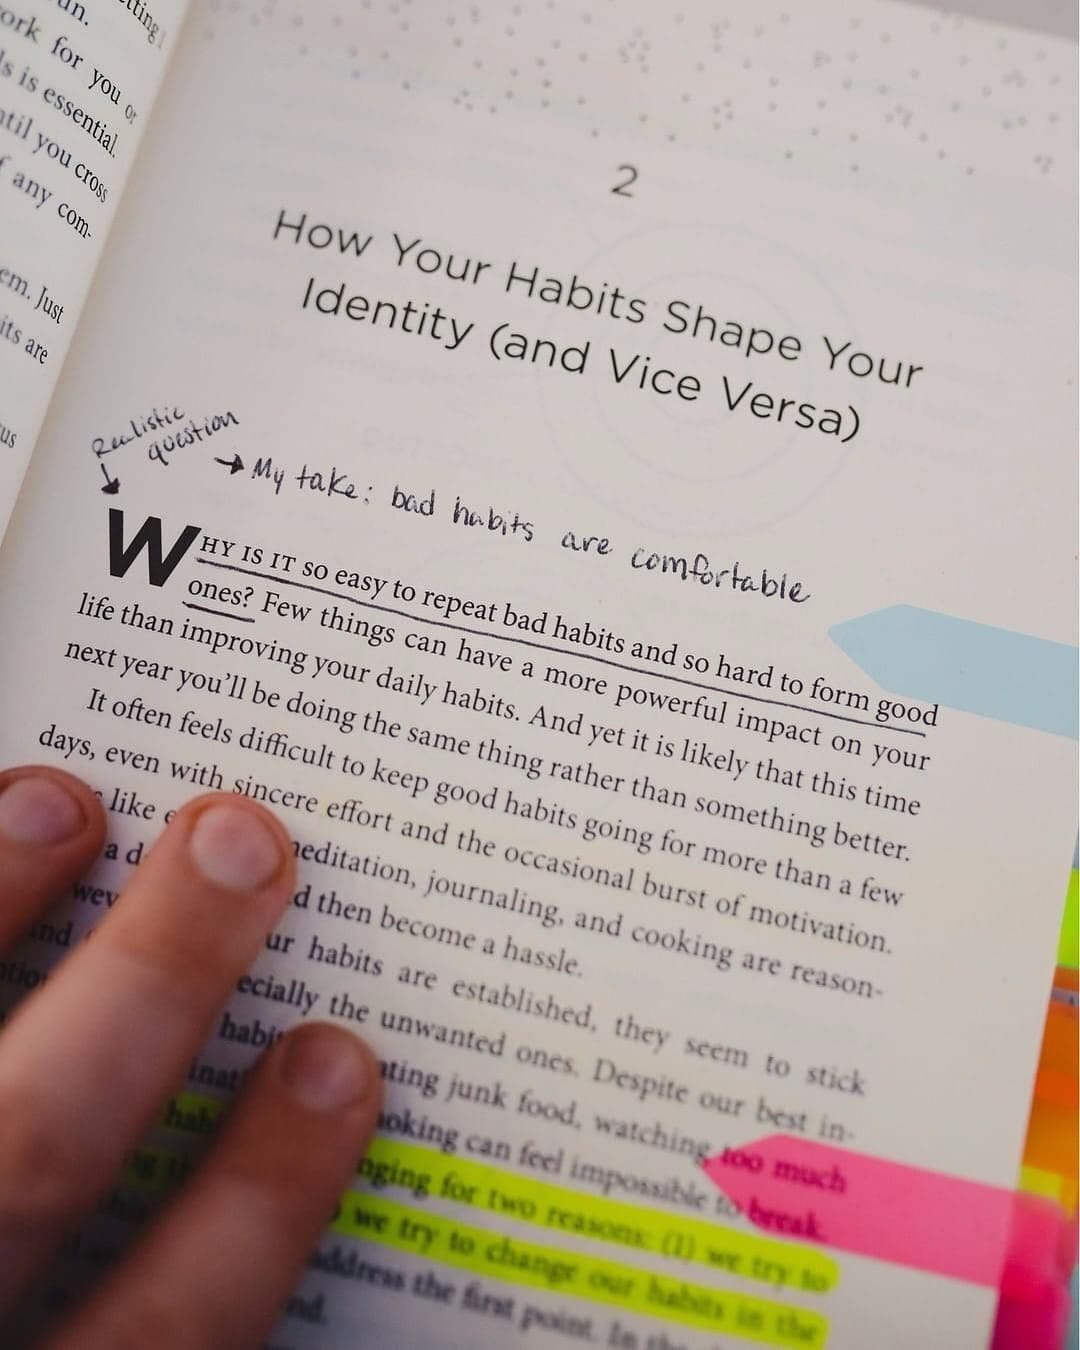 un.
ork for you or
ls is essential.
ntil you cross
f any com-
em. Just
its are
us
2
How Your Habits Shape Your
Identity (and Vice Versa)
Realistic
question
→ My take: bad habits are comfortable
WHY IS IT so easy to repeat bad habits and so hard to form good
ones? Few things can have a more powerful impact on your
life than improving your daily habits. And yet it is likely that this time
next year you'll be doing the same thing rather than something better.
It often feels difficult to keep good habits going for more than a few
days, even with sincere effort and the occasional burst of motivation.
like meditation, journaling, and cooking are reason-
a d then become a hassle.
wev ur habits are established, they seem to stick
and ecially the unwanted ones. Despite our best in-
habi ating junk food, watching too much
inat oking can feel impossible to break.
hab nging for two reasons: (1) we try to
we try to change our habits in the
address the first point. In the
nd.